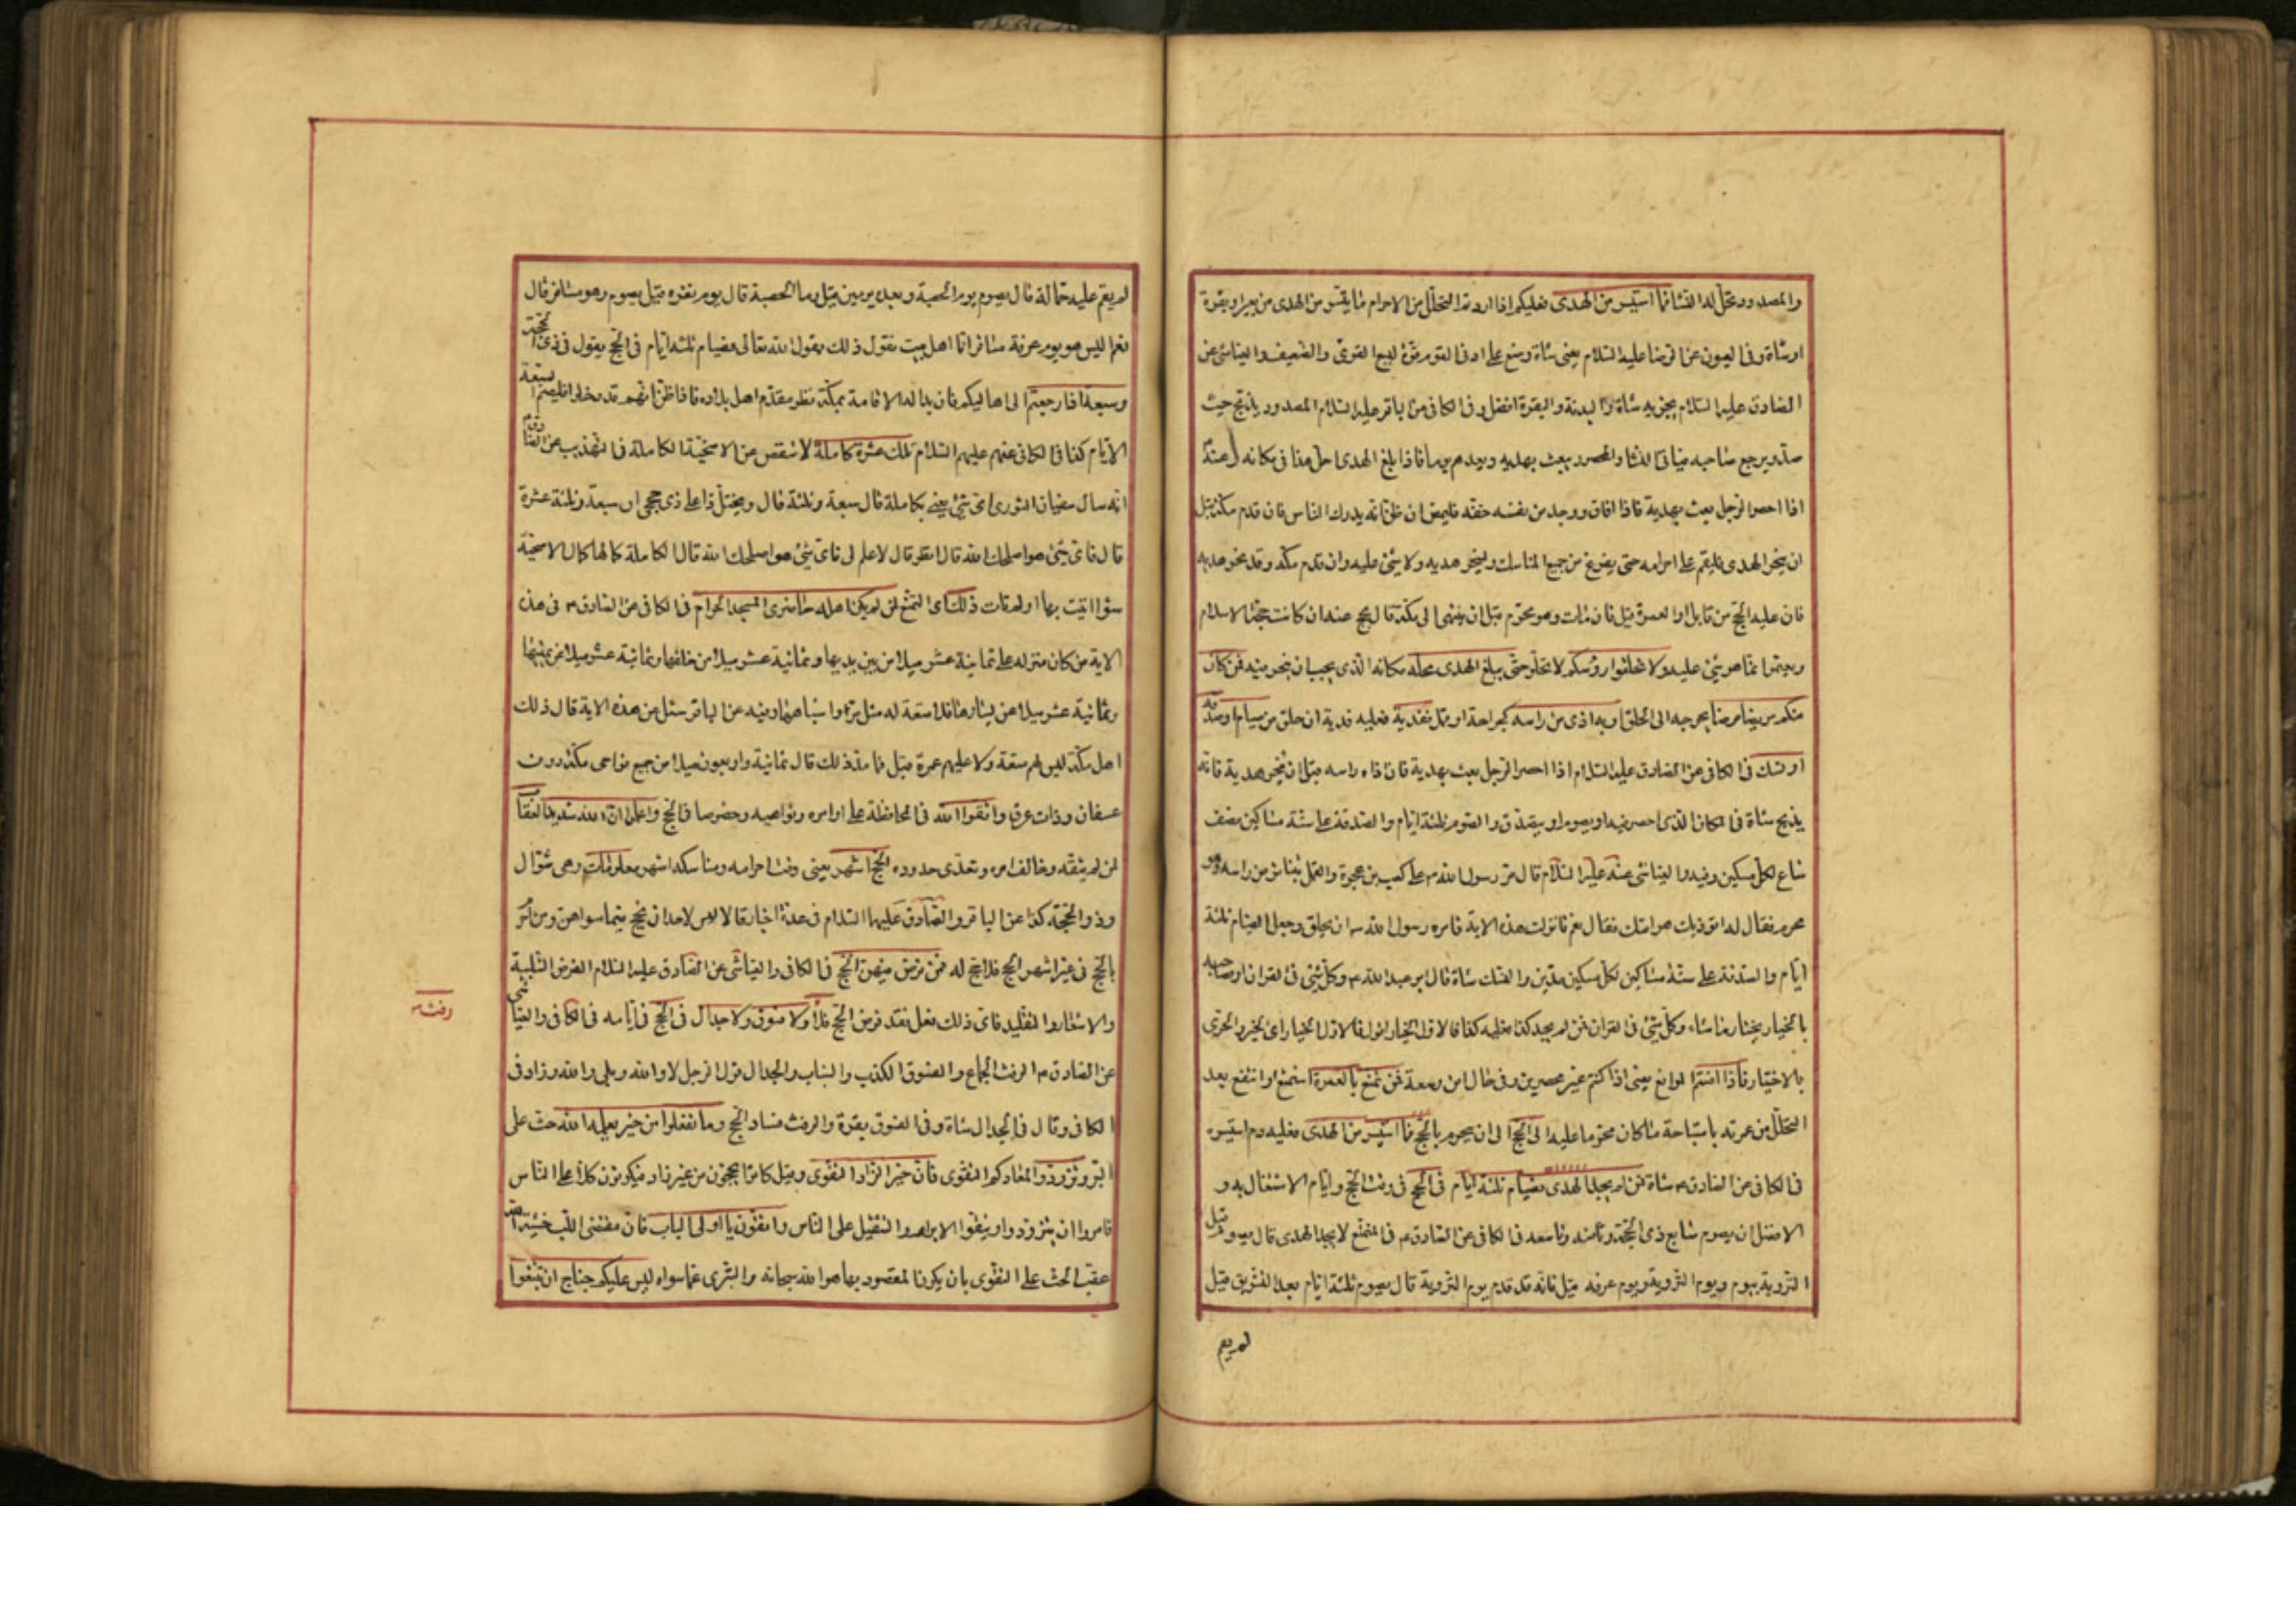 والمصدود تحل له النساء فما استيسر من الهدى فعليكم اذا اردتم التحلل من الاحرام ما تيسر من الهدى من بعير او بقرة
او شاة وفى العيون عن الرضا عليه السلام يعنى شاة وضع على ادنى القوم قوة ليسع القوى والضعيف والعياشى عن
الصادق عليه السلام يجزيه شاة والبدنة والبقرة افضل وفى الكافى عن الباقر عليه السلام المصدود يذبح حيث
صد ويرجع صاحبه فياتى النساء والمحصور يبعث بهديه ويعدهم يوما فاذا بلغ الهدى احل هذا فى مكانه وعنه
اذا احصر الرجل بعث بهديه فاذا افاق ووجد من نفسه خفة فليمض ان ظن انه يدرك الناس فان قدم مكة قبل
ان ينحر الهدى فليقم على احرامه حتى يفرغ من جميع المناسك ولينحر هديه ولا شئ عليه وان قدم مكة وقد نحر هديه
فان عليه الحج من قابل او العمرة قيل فان مات وهو محرم قبل ان ينتهى الى مكة قال يحج عنه ان كانت حجة الاسلام
ويعتمر انما هو شئ عليه ولا تحلقوا رؤسكم لا تحلوا حتى يبلغ الهدى محله مكانه الذى يجب ان ينحر فيه فمن كان
منكم مريضا مرضا يحوجه الى الحلق او به اذى من راسه كجراحة او قمل ففدية فعليه فدية ان حلق من صيام او صدقة
او نسك فى الكافى عن الصادق عليه السلام اذا احصر الرجل بعث بهديه فان اذاه راسه قبل ان ينحر هديه فانه
يذبح شاة فى المكان الذى احصر فيه او يصوم او يتصدق والصوم ثلثة ايام والصدقة على ستة مساكين نصف
صاع لكل مسكين وفيه والعياشى عنه عليه السلام قال مر رسول الله ص على كعب بن عجرة والقمل يتناثر من راسه وهو
محرم فقال له اتؤذيك هوامك فقال نعم فانزلت هذه الاية فامره رسول الله ص ان يحلق وجعل الصيام ثلثة
ايام والصدقة على ستة مساكين لكل مسكين مدين والنسك شاة قال ابو عبد الله ع وكل شئ فى القران او صاحبه
بالخيار يختار ما شاء وكل شئ فى القران فمن لم يجد كذا فعليه كذا فالاولى الخيار اقول فالاول الخيار اى الخير والحرى
بالاختيار فاذا امنتم الموانع يعنى اذا كنتم غير محصرين وفى حال امن وسعة فمن تمتع بالعمرة استمتع وانتفع بعد
التحلل من عمرته باستباحة ما كان محرما عليه الى الحج الى ان يحرم بالحج فما استيسر من الهدى فعليه دم استيسره
فى الكافى عن الصادق ع شاة فمن لم يجد الهدى فصيام ثلثة ايام فى الحج فى وقت الحج وايام الاشتغال به و
الافضل ان يصوم سابع ذى الحجة وثامنه وتاسعه فى الكافى عن الصادق ع فى المتمتع لا يجد الهدى قال يصوم قبل
التروية بيوم ويوم التروية ويوم عرفه قيل فانه قد قدم يوم التروية قال يصوم ثلثة ايام بعد التشريق قيل
لم يقم
لم يقم عليه جماله قال يصوم يوم الحصبة وبعده يومين قيل وما الحصبة قال يوم نفره قيل يصوم وهو مسافر قال
نعم اليس هو يوم عرفة مسافرا انا اهل بيت نقول ذلك يقول الله تعالى فصيام ثلثة ايام فى الحج يقول فى ذى الحجة
وسبعة اذا رجعتم الى اهاليكم فان بدا له الاقامة بمكة نظر مقدم اهل بلاده فاذا ظن انهم قد دخلوا فليصم السبعة
الايام كذا فى الكافى عنهم عليهم السلام تلك عشرة كاملة لا تنقص عن الاضحية الكاملة فى التهذيب عن الصادق ع
انه سال سفيان الثورى اى شئ يعنى بكاملة قال سبعة وثلثة قال ويختل ذا على ذى حجى ان سبعة وثلثة عشرة
قال فاى شئ هو اصلحك الله قال انظر قال لا علم لى فاى شئ هو اصلحك الله قال الكاملة كمالها كمال الاضحية
سواء اتيت بها او لم تات ذلك اى التمتع لمن لم يكن اهله حاضرى المسجد الحرام فى الكافى عن الصادق ع فى هذه
الاية من كان منزله على ثمانية عشر ميلا من بين يديها وثمانية عشر ميلا من خلفها وثمانية عشر ميلا عن يمينها
وثمانية عشر ميلا عن يسارها فلا متعة له مثل مر واشباهها وفيه عن الباقر سئل عن هذه الاية قال ذلك
اهل مكة ليس لهم متعة ولا عليهم عمرة قيل فما حد ذلك قال ثمانية واربعون ميلا من جميع نواحى مكة دون
عسفان وذات عرق واتقوا الله فى المحافظة على اوامره ونواهيه وخصوصا فى الحج واعلموا ان الله شديد العقاب
لمن لم يتقه وخالف امره وتعدى حدوده الحج اشهر يعنى وقت احرامه ومناسكه اشهر معلومات وهى شوال
وذو الحجة كذا عن الباقر والصادق عليهما السلام فى عدة اخبار قالا ليس لاحد ان يحج فيما سواهن ومن احرم
بالحج فى غير اشهر الحج فلا حج له فمن فرض فيهن الحج فى الكافى والعياشى عن الصادق عليه السلام الفرض التلبية
والاشعار والتقليد فاى ذلك فعل فقد فرض الحج فلا ولا فسوق ولا جدال فى الحج فى ايامه فى الكافى والعياشى
رفث
عن الصادق ع الرفث الجماع والفسوق الكذب والسباب والجدال قول الرجل لا والله وبلى والله وزاد فى
الكافى وقال فى الجدال شاة وفى الفسوق بقرة والرفث فساد الحج وما تفعلوا من خير يعلمه الله حث على
البر وتزودوا لمعادكم التقوى فان خير الزاد التقوى وقيل كانوا يحجون من غير زاد فيكونون كلا على الناس
فامروا ان يتزودوا ويتقوا الابرام والتثقيل على الناس واتقون يا اولى الالباب فان مقتضى اللب خشية الله
عقب الحث على التقوى بان يكون المقصود بها هو الله سبحانه والتبرى عما سواه ليس عليكم جناح ان تبتغوا